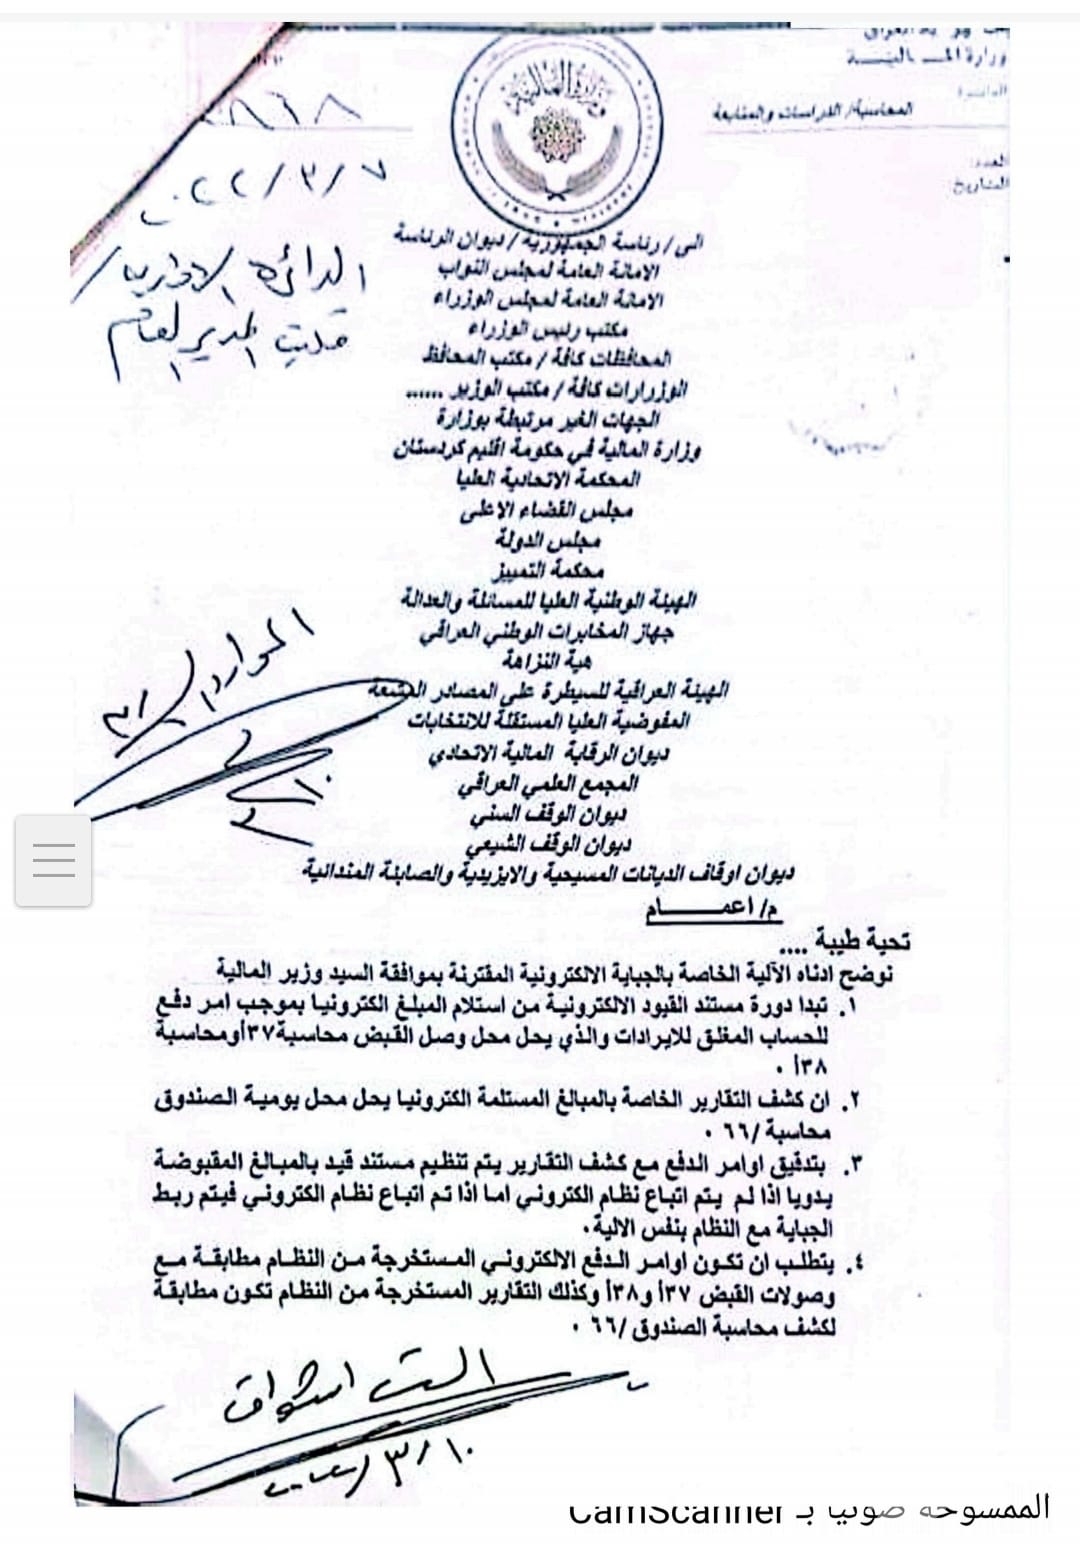 وزارة المـــالية
المحاسبة/ الدراسات والمتابعة
العدد:
التاريخ:
وزارة المالية
٢٠٢٢/٣/٧
الدائرة الادارية/
مكتب المدير العام
الى/ رئاسة الجمهورية/ ديوان الرئاسة
الامانة العامة لمجلس النواب
الامانة العامة لمجلس الوزراء
مكتب رئيس الوزراء
المحافظات كافة/ مكتب المحافظ
الوزرارات كافة/ مكتب الوزير ......
الجهات الغير مرتبطة بوزارة
وزارة المالية في حكومة اقليم كردستان
المحكمة الاتحادية العليا
مجلس القضاء الاعلى
مجلس الدولة
محكمة التمييز
الهيئة الوطنية العليا للمسائلة والعدالة
جهاز المخابرات الوطني العراقي
هية النزاهة
الهيئة العراقية للسيطرة على المصادر المشعة
المفوضية العليا المستقلة للانتخابات
ديوان الرقابة المالية الاتحادي
المجمع العلمي العراقي
ديوان الوقف السني
ديوان الوقف الشيعي
ديوان اوقاف الديانات المسيحية والايزيدية والصابئة المندائية
الموارد
م/ اعمـــــــام
تحية طيبة ....
نوضح ادناه الآلية الخاصة بالجباية الالكترونية المقترنة بموافقة السيد وزير المالية
١. تبدا دورة مستند القيود الالكترونية من استلام المبلغ الكترونيا بموجب امر دفع
للحساب المغلق للايرادات والذي يحل محل وصل القبض محاسبة٣٧أومحاسبة
٣٨أ ٠
٢. ان كشف التقارير الخاصة بالمبالغ المستلمة الكترونيا يحل محل يومية الصندوق
محاسبة /٦٦ ٠
٣. بتدقيق اوامر الدفع مع كشف التقارير يتم تنظيم مستند قيد بالمبالغ المقبوضة
يدويا اذا لم يتم اتباع نظام الكتروني اما اذا تم اتباع نظام الكتروني فيتم ربط
الجباية مع النظام بنفس الالية.
٤. يتطلب ان تكون اوامر الدفع الالكتروني المستخرجة من النظام مطابقة مع
وصولات القبض ٣٧أ و٣٨أ وكذلك التقارير المستخرجة من النظام تكون مطابقة
لكشف محاسبة الصندوق /٦٦ ٠
الست اشواق
٢٠٢٢/٣/١٠
الممسوحة ضوئيا بـ CamScanner